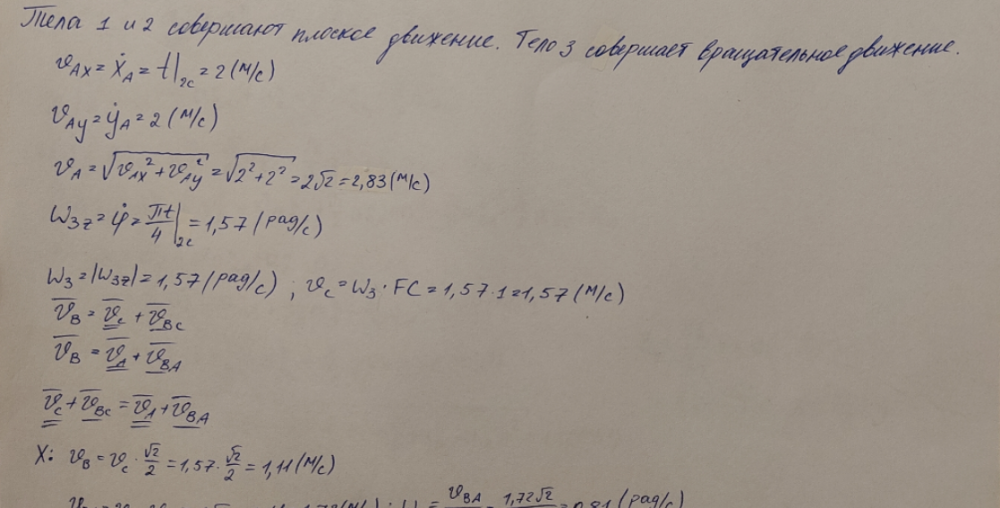 Тела 1 и 2 совершают плоское движение. Тело 3 совершает вращательное движение.
v_Ax = ẋ_A = t|_2c = 2 (м/с)
v_Ay = ẏ_A = 2 (м/с)
v_A = √(v_Ax² + v_Ay²) = √(2² + 2²) = 2√2 = 2,83 (м/с)
ω_3z = φ̇ = πt/4|_2c = 1,57 (рад/с)
ω_3 = |ω_3z| = 1,57 (рад/с) ; v_c = ω_3 · FC = 1,57 · 1 = 1,57 (м/с)
v̅_B = v̅_c + v̅_Bc
v̅_B = v̅_A + v̅_BA
v̅_c + v̅_Bc = v̅_A + v̅_BA
X: v_B = v_c · √2/2 = 1,57 · √2/2 = 1,11 (м/с)
v_BA 1,72√2 (рад/с)